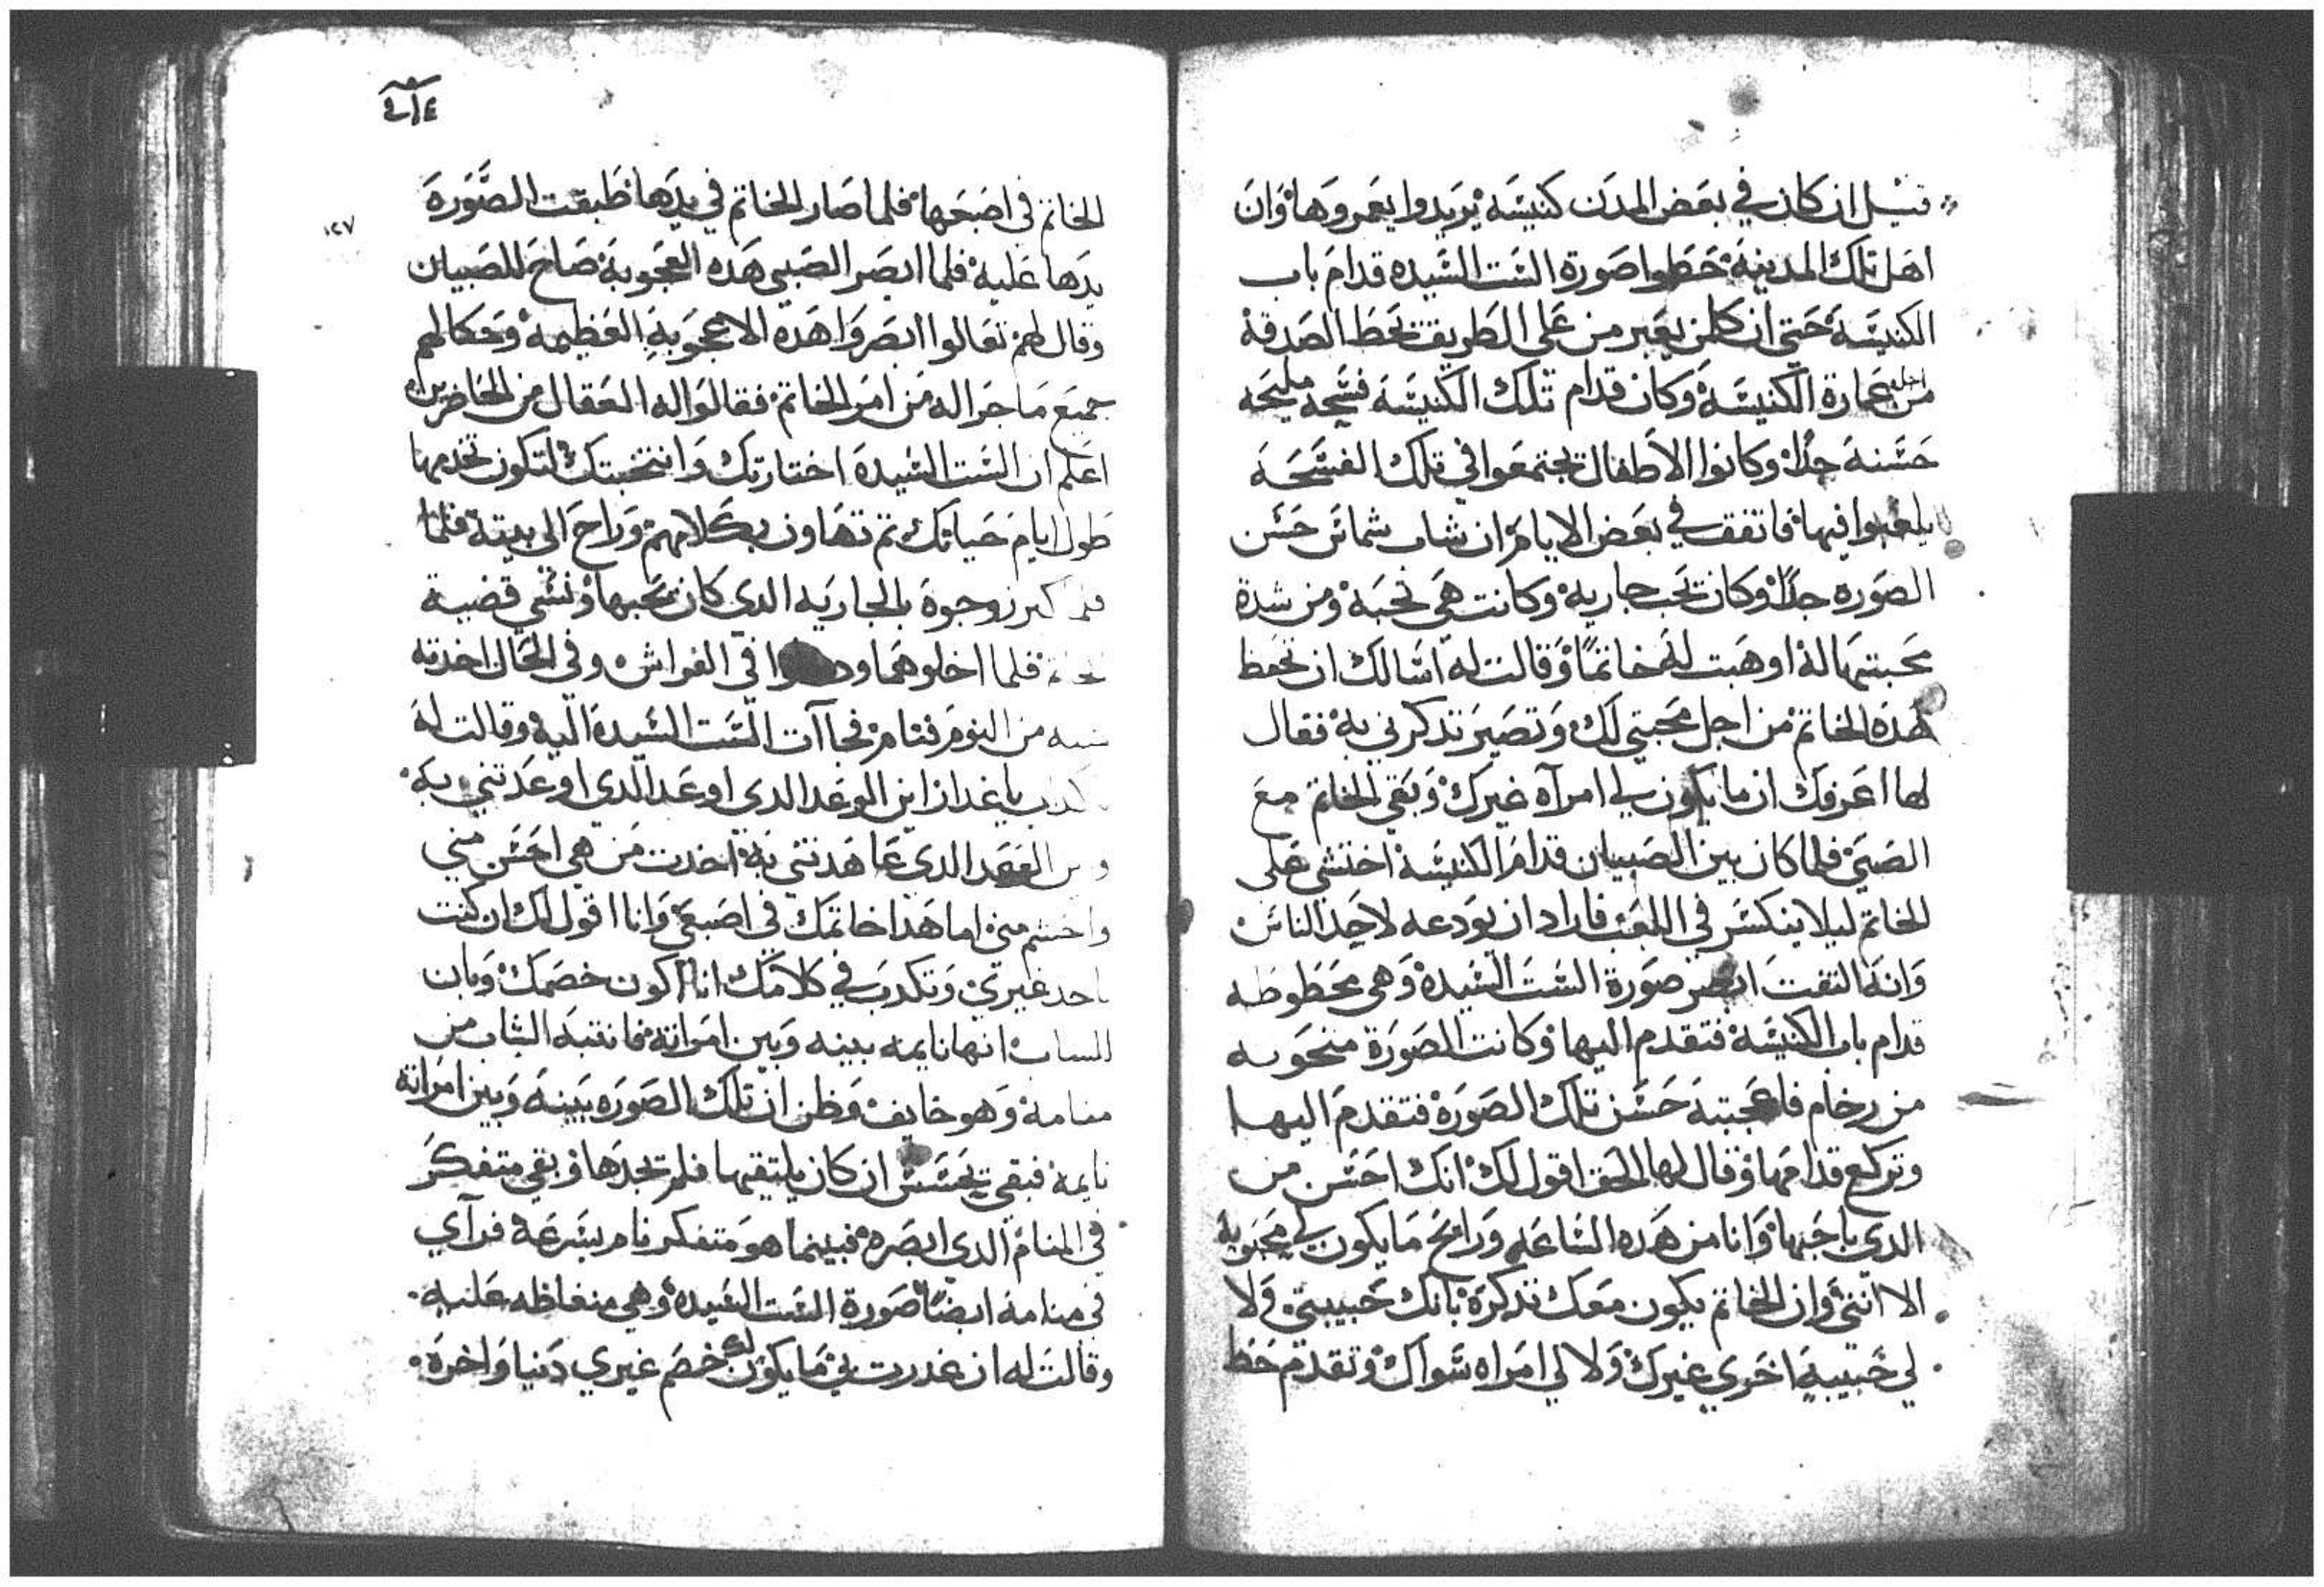 قيل ان كان في بعض المدن كنيسه يريدوا يعمروها وان
اهل تلك المدينة حطوا صورة الست السيده قدام باب
الكنيسة حتي ان كلمن يعبر من علي الطريق يحط الصدقة
من اجل عمارة الكنيسة وكان قدام تلك الكنيسة فسحه مليحه
حسنة جدا وكانوا الاطفال يجتمعوا في تلك الفسحة
يلعبوا فيها فاتفق في بعض الايام ان شاب شماس حسن
الصوره جدا وكان يحب جارية وكانت هي تحبه ومن شدة
محبتها له اوهبت له خاتما وقالت له اسالك ان تحفظ
هده الخاتم من اجل محبتي لك وتصير تدكرني به فقال
لها اعرفك ان ما يكون لي امرآه غيرك وبقي الخاتم مع
الصبي فلما كان بين الصبيان قدام الكنيسة اختشي علي
الخاتم ليلا ينكسر في اللعب فاراد ان يودعه لاحد الناس
وانه التفت ابصر صورة الست السيدة وهي محطوطه
قدام باب الكنيسة فتقدم اليها وكانت الصورة منحوته
من رخام فاعجبته حسن تلك الصورة فتقدم اليها
وتركع قدامها وقال لها الحق اقول لك انك احسن من
الدي باحبها وانا من هده الساعه ورايح ما يكون لي محبوبه
الا انتي وان الخاتم يكون معك تدكرة بانك حبيبتي ولا
لي حبيبة اخري غيرك ولا لي امراه سواك وتقدم حط
٤١٢
١٢٧
الخاتم في اصبعها فلما صار الخاتم في يدها طبقت الصورة
يدها عليه فلما ابصر الصبي هده العجوبة صاح للصبيان
وقال لهم تعالوا ابصروا هده الاعجوبة العظيمة وحكا لهم
جميع ما جرا له من امر الخاتم فقالوا له العقال من الحاضرين
اعلم ان الست السيدة اختارتك وانتخبتك لتكون تخدمها
طول ايام حياتك تم تهاون بكلامهم وراح الي بيته فلما
كبر زوجوة بالجاريه الدي كان يحبها ونسي قضية
فلما اخلوهما في الفراش وفي الحال اخدته
من النوم فنام فجاآت الست السيدة اليه وقالت له
يا غدار اين الوعد الدي اوعد الدي اوعدتني به
العهد الدي عاهدتني به اخدت من هي احسن مني
واحشم مني اما هدا خاتمك في اصبعي وانا اقول لك ان كنت
تاخد غيري وتكدب في كلامك انا اكون خصمك وبان
للساب انها نايمه بينه وبين امراته فانتبه الشاب من
منامة وهو خايف وظن ان تلك الصوره بينه وبين امراته
نايمة فبقي يجسس ان كان يلتقيها فلم يجدها وبقي متفكر
في المنام الدي ابصره فبينما هو متفكر نام بسرعة فرآي
في منامة ايضا صورة الست السيده وهي منغاظه عليه
وقالت له ان غدرت بي ما يكون لك خصم غيري دنيا واخرة